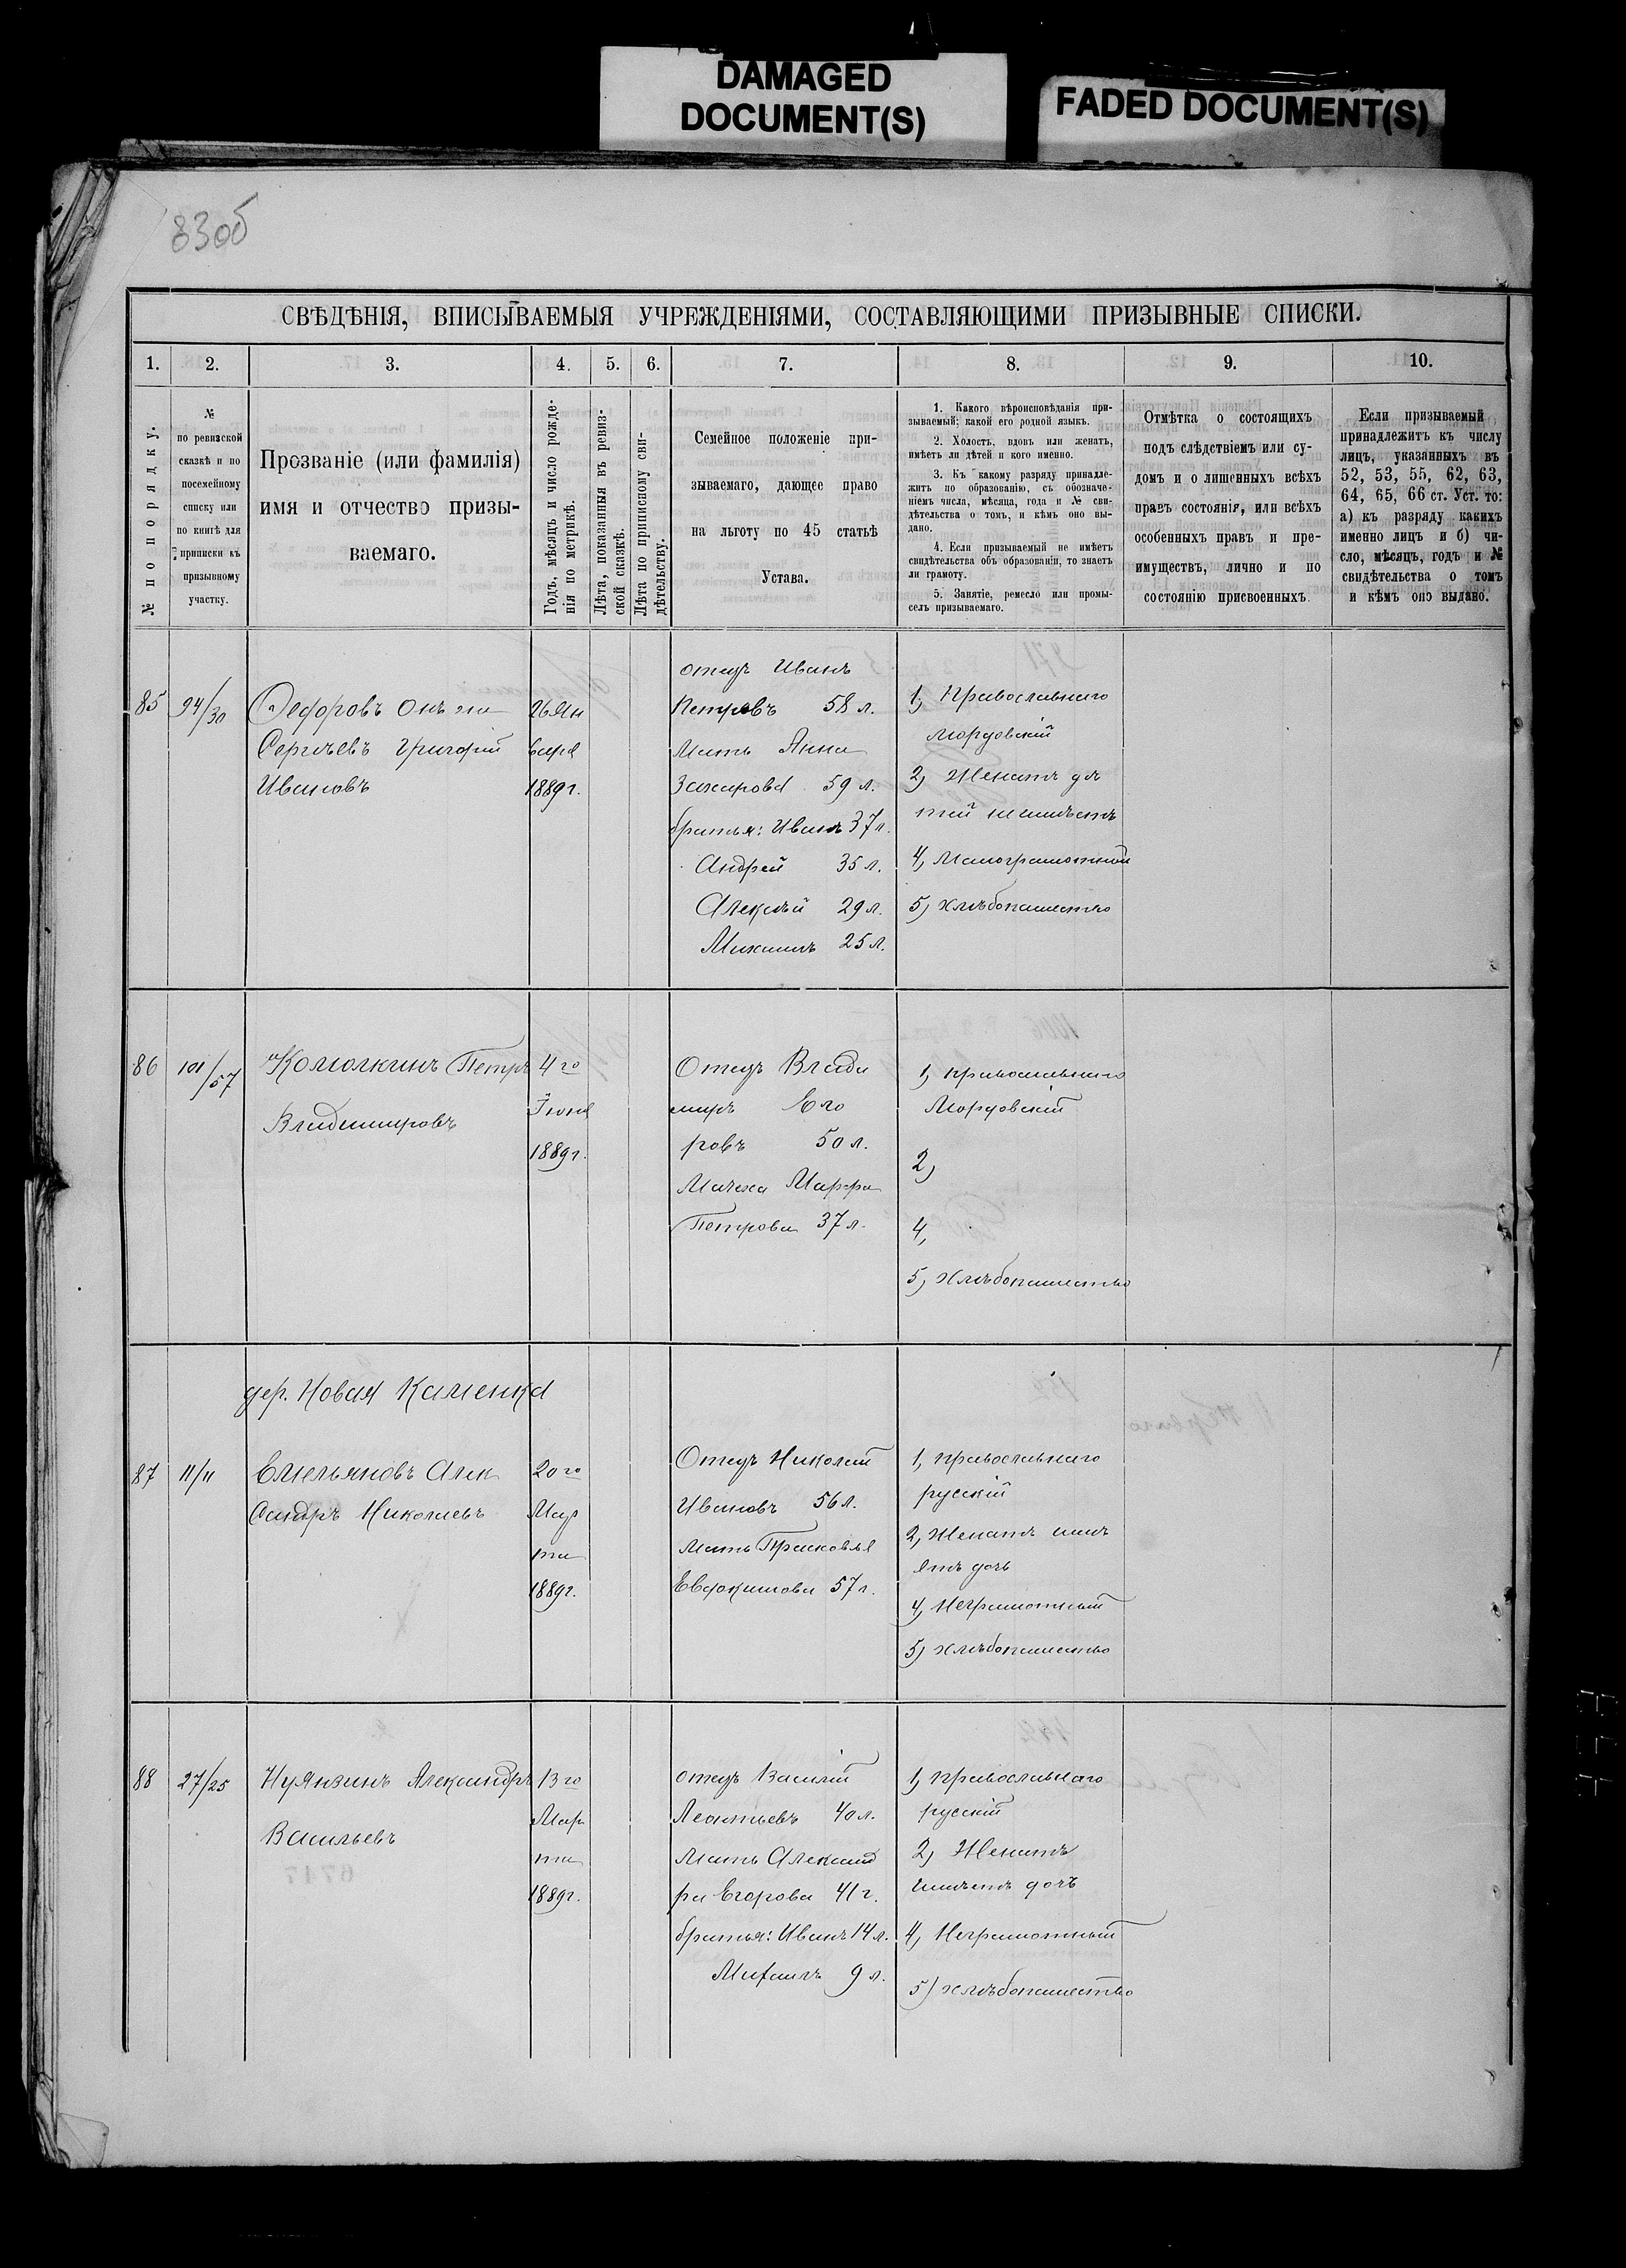 DAMAGED
DOCUMENT(S)
FADED DOCUMENT(S)
83об
СВѢДѢНІЯ, ВПИСЫВАЕМЫЯ УЧРЕЖДЕНІЯМИ, СОСТАВЛЯЮЩИМИ ПРИЗЫВНЫЕ СПИСКИ.
1. 2. 3. 4. 5. 6. 7. 8. 9. 10.
№ по порядку.
№
по ревизской
сказкѣ и по
посемейному
списку или
по книгѣ для
приписки къ
призывному
участку.
Прозваніе (или фамилія)
имя и отчество призы-
ваемаго.
Годъ, мѣсяцъ и число рожде-
нія по метрикѣ.
Лѣта, показанныя въ ревиз-
ской сказкѣ.
Лѣта по приписному сви-
дѣтельству.
Семейное положеніе при-
зываемаго, дающее право
на льготу по 45 статьѣ
Устава.
1. Какого вѣроисповѣданія при-
зываемый; какой его родной языкъ.
2. Холостъ, вдовъ или женатъ,
имѣетъ ли дѣтей и кого именно.
3. Къ какому разряду принадле-
житъ по образованію, съ обозначе-
ніемъ числа, мѣсяца, года и № сви-
дѣтельства о томъ, и кѣмъ оно вы-
дано.
4. Если призываемый не имѣетъ
свидѣтельства объ образованіи, то знаетъ
ли грамоту.
5. Занятіе, ремесло или промы-
селъ призываемаго.
Отмѣтка о состоящихъ
подъ слѣдствіемъ или су-
домъ и о лишенныхъ всѣхъ
правъ состоянія, или всѣхъ
особенныхъ правъ и пре-
имуществъ, лично и по
состоянію присвоенныхъ.
Если призываемый
принадлежитъ къ числу
лицъ, указанныхъ въ
52, 53, 55, 62, 63,
64, 65, 66 ст. Уст. то:
а) къ разряду какихъ
именно лицъ и б) чи-
сло, мѣсяцъ, годъ и №
свидѣтельства о томъ
и кѣмъ оно выдано.
85
94/30
Федоровъ онъ же
Сергѣевъ Григорій
Ивановъ
26 Ян
варя
1889 г.
отецъ Иванъ
Петровъ 58 л.
Мать Анна
Захарова 59 л.
братья: Иванъ 37 л.
Андрей 35 л.
Алексѣй 29 л.
Михаилъ 25 л.
1, Православнаго
мордовскій
2, Женатъ дѣ
тей неимѣетъ
4, Малограмотный
5, хлѣбопашество
86
101/57
Колюлкинъ Петръ
Владимировъ
4го
Іюня
1889 г.
Отецъ Влади
миръ Его
ровъ 50 л.
Мачеха Марфа
Петрова 37 л.
1, православнаго
Мордовскій
2,
4,
5, хлѣбопашество
дер. Новая Каменка
87
11/11
Емельяновъ Алек
сандръ Николаевъ
20го
Мар
та
1889 г.
Отецъ Николай
Ивановъ 56 л.
Мать Прасковья
Евдокимова 57 л.
1, православнаго
русскій
2, Женатъ имѣ
етъ дочь
4, Неграмотный
5, хлѣбопашество
88
27/25
Нуянзинъ Александръ
Васильевъ
13го
Мар
та
1889 г.
отецъ Василій
Леонтьевъ 40 л.
Мать Александ
ра Егорова 41 г.
братья: Иванъ 14 л.
Михаилъ 9 л.
1, православнаго
русскій
2, Женатъ
имѣетъ дочь
4, Неграмотный
5) хлѣбопашество